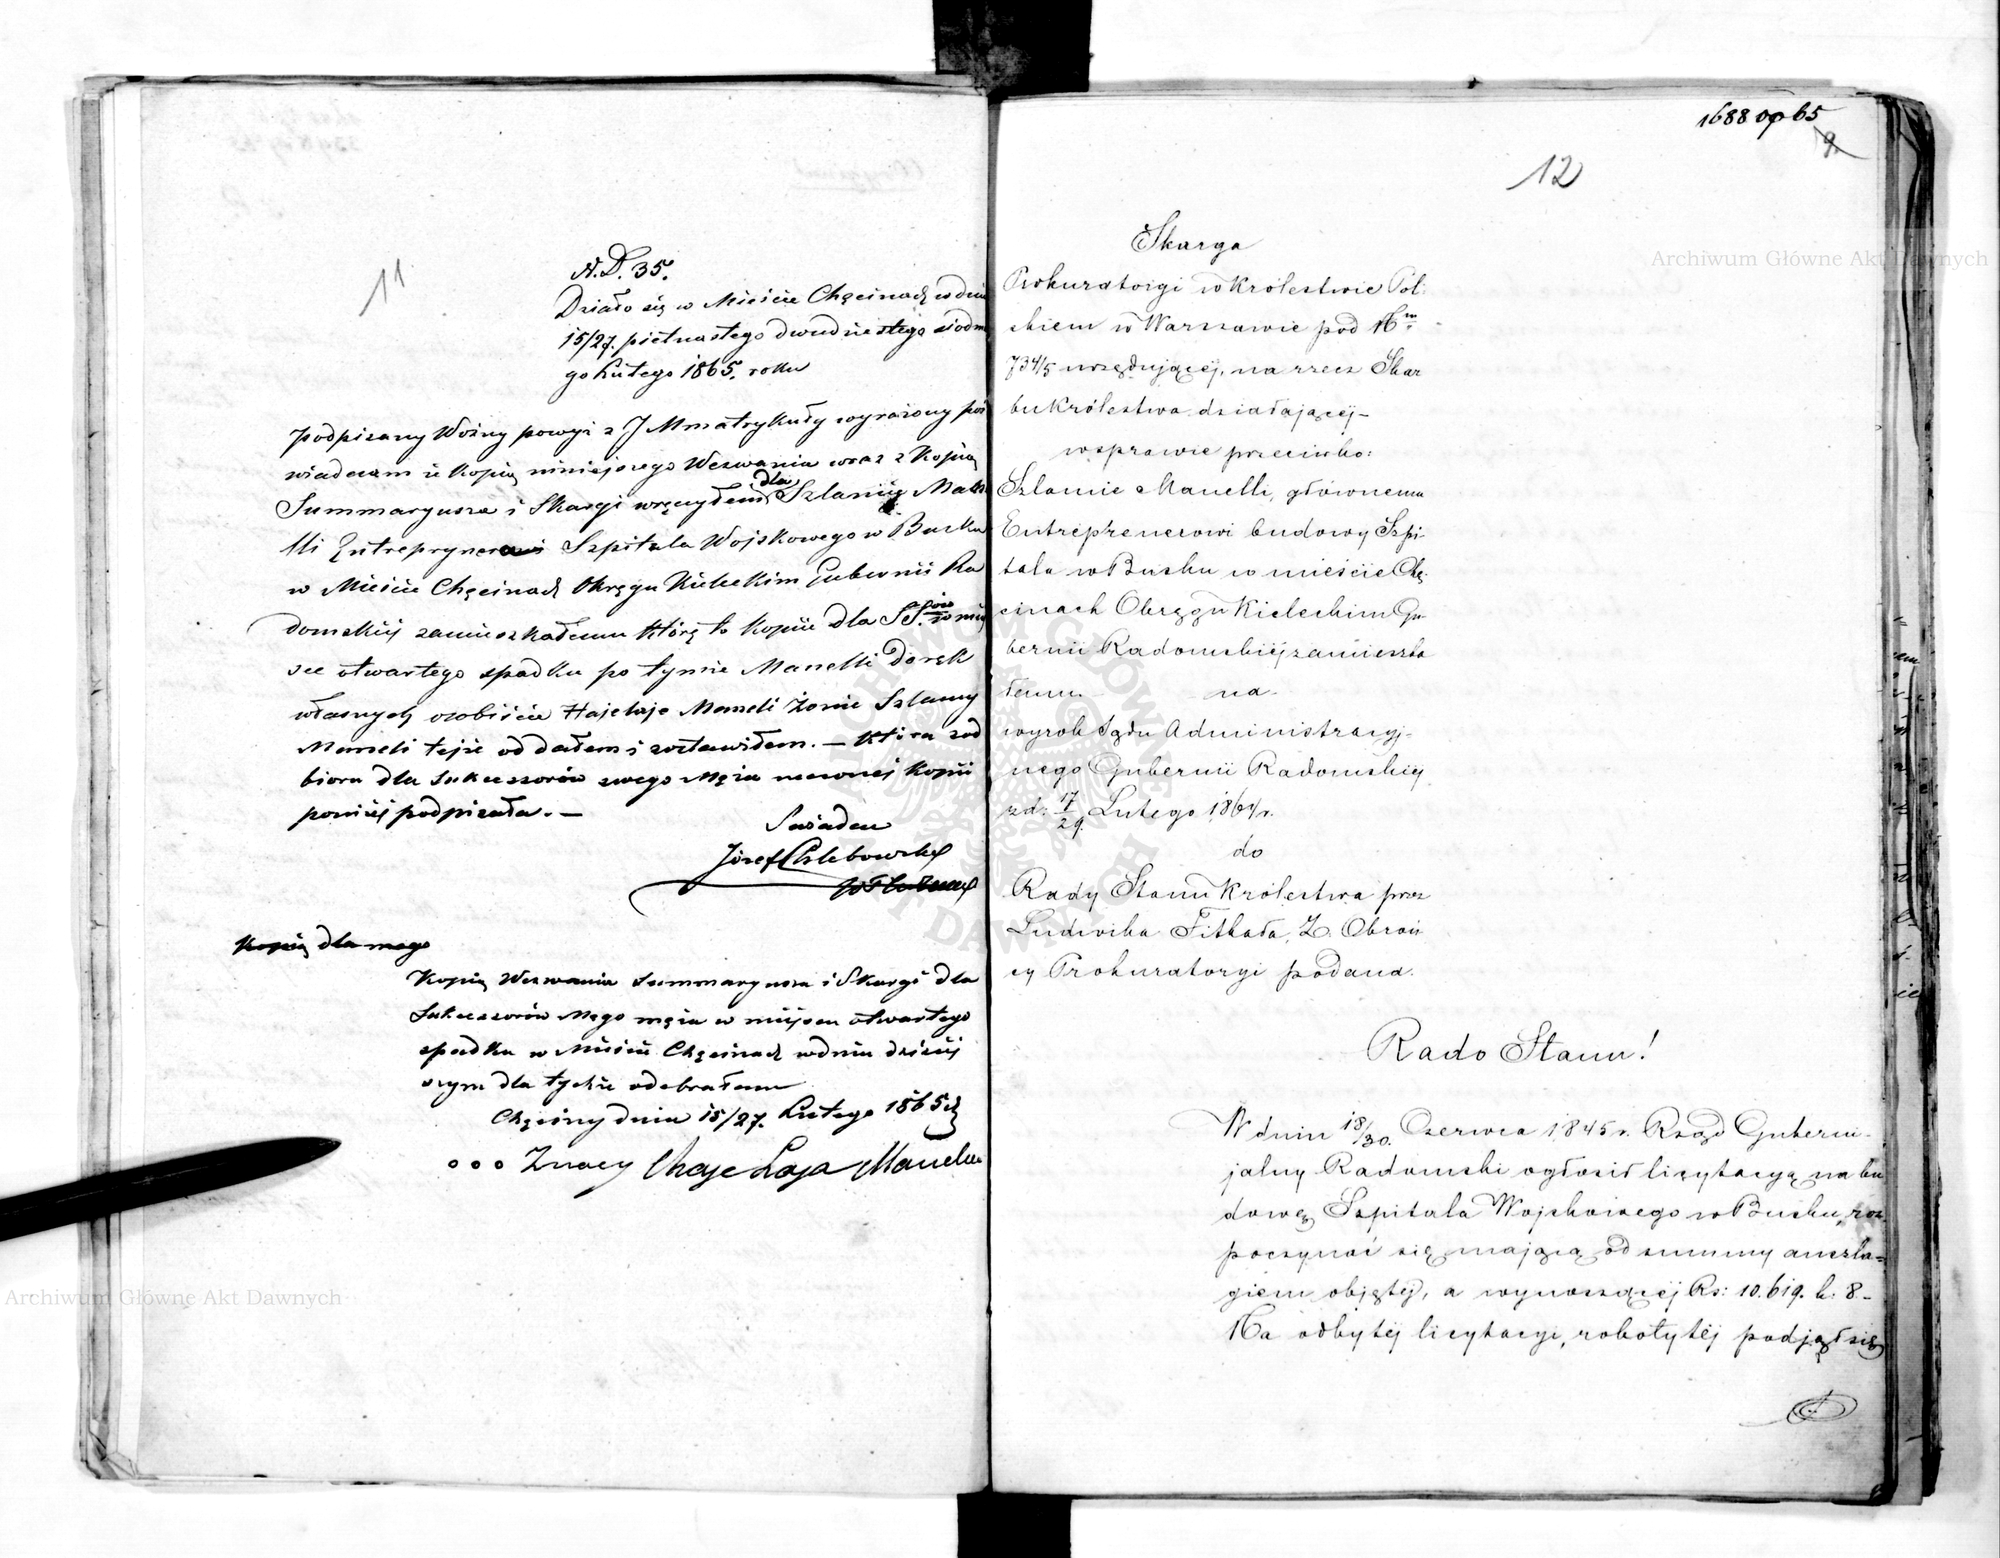 11
N.D. 35.
Działo się w Mieście Chęcinach w dniu
15/27. pietnastego dwudziestego siódme
go Lutego 1865. roku
Podpisany Woźny powyż z J Mmatrykuły wyrażony poś
wiadczam iż Kopią niniejszego Wezwania wraz z Kopią
Summaryusza i Skargi wręczyłem dla Szlamy Man
lli Entrepryner Szpitala Wojskowego w Busku
w Mieście Chęcinach Okręgu Kieleckim Gubernii Ra
domskiej zamieszkałemu którę to kopiie dla SS.ów w miej
sce otwartego spadku po tymże Manelli do rąk
własnych osobiście Hajełaje Maneli Żonie Szlamy
Maneli tejże oddałem i zostawiłem. — która z od
bioru dla Sukcessorów swego Męża mownej kopii
poniżej podpisała. —
Świadcu
Józef Chlebowski
Kopią dla mego
Kopią Wezwania Summaryusza i Skargi dla
Sukcessorów Mego męża w miejscu otwartego
spadku w Mieście Chęcinach w dniu dzisiej
szym dla tychże odebrałam
Chęciny dnia 15/27. Lutego 1865
ooo Znacy Chaje Łaja Manelu
1688 op 65
9
12
Skarga
Prokuratoryi w Królestwie Pol:
skiem w Warszawie pod Nm
734/5 urzędującej, na rzecz Skar
bu Królestwa działającej —
w sprawie przeciwko:
Szlamie Manelli, głównemu
Entreprenerowi budowy Szpi-
tala w Busku w mieście Chę-
cinach Okręgu Kieleckim Gu-
bernii Radomskiej zamieszka
łemu na
wyrok Sądu Administracyj-
nego Gubernii Radomskiej
z d: 17/29 Lutego 1864 r.
do
Rady Stanu Królestwa przez
Ludwika Fitkała, Z. Obroń
cy Prokuratoryi podana.
Rado Stanu!
W dniu 18/30. Czerwca 1845 r. Rząd Guberni-
jalny Radomski ogłosił licytacyą na bu
dowę Szpitala Wojskowego w Busku, roz
poczynać się mającą od summy anszla=
giem objętej, a wynoszącej Rs: 10.619. k. 8 —
Na odbytej licytacyi, roboty tej podjął się
Archiwum Główne Akt Dawnych
Archiwum Główne Akt Dawnych
ARCHIWUM GŁÓWNE AKT DAWNYCH